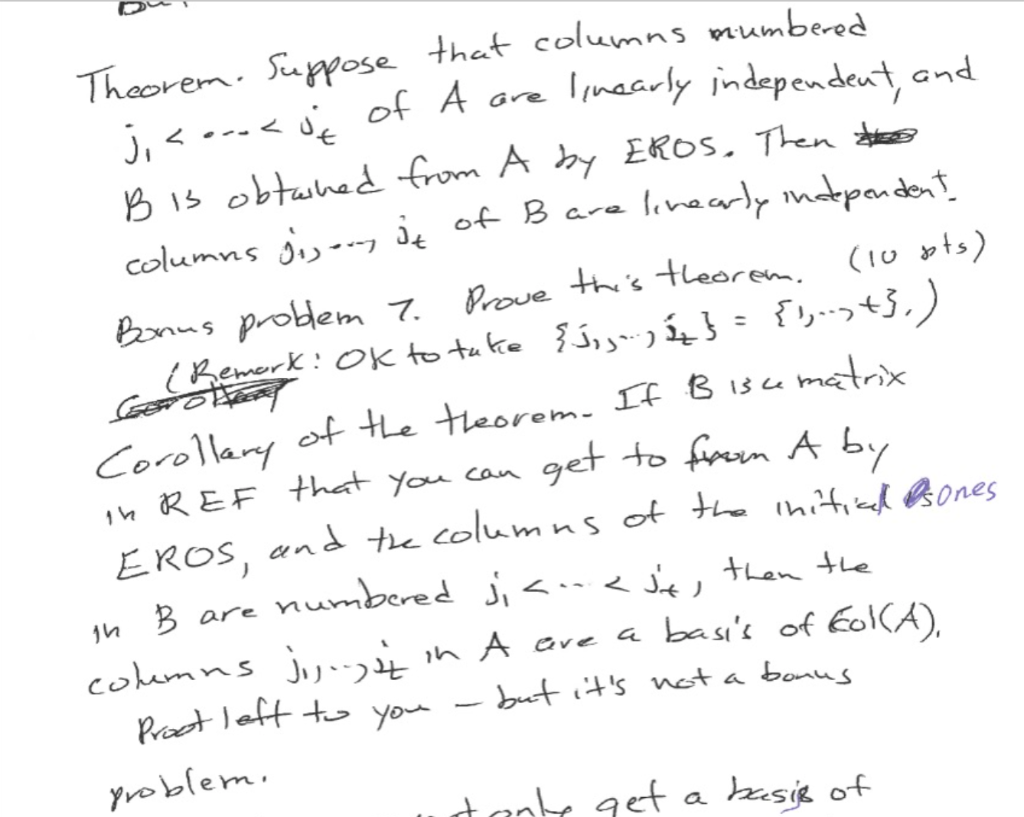 Theorem. Suppose that columns numbered
j₁ < ... < jₜ of A are linearly independent, and
B is obtained from A by EROS. Then
columns j₁, ..., jₜ of B are linearly independent.
Bonus problem 7. Prove this theorem. (10 pts)
(Remark: OK to take {j₁, ..., jₜ} = {1, ..., t}.)
Corollary of the theorem. If B is a matrix
in REF that you can get to from A by
EROS, and the columns of the initial ones
in B are numbered j₁ < ... < jₜ, then the
columns j₁, ..., jₜ in A are a basis of Col(A).
Proof left to you – but it's not a bonus
problem.
get a basis of